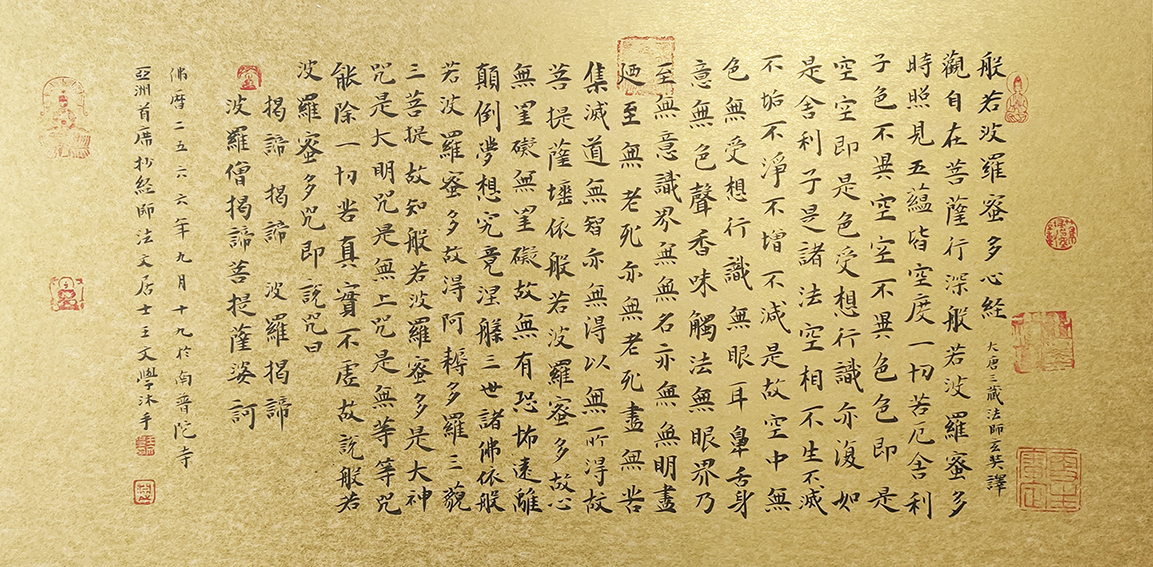 般若波羅蜜多心経 大唐三藏法師玄奘譯
觀自在菩薩行深般若波羅蜜多
時照見五蘊皆空度一切苦厄舍利
子色不異空空不異色色即是
空空即是色受想行識亦復如
是舍利子是諸法空相不生不滅
不垢不淨不增不減是故空中無
色無受想行識無眼耳鼻舌身
意無色聲香味觸法無眼界乃
至無意識界無無名亦無無明盡
廼至無老死亦無老死盡無苦
集滅道無智亦無得以無所得故
菩提薩埵依般若波羅蜜多故心
無罣礙無罣礙故無有恐怖遠離
顛倒夢想究竟涅槃三世諸佛依般
若波羅蜜多故得阿耨多羅三藐
三菩提故知般若波羅蜜多是大神
咒是大明咒是無上咒是無等等咒
能除一切苦真實不虛故說般若
波羅蜜多咒即說咒曰
揭諦 揭諦 波羅揭諦
波羅僧揭諦菩提薩婆訶
佛曆二五六六年九月十九於南普陀寺
亞洲首席抄経師法文居士王文學沐手